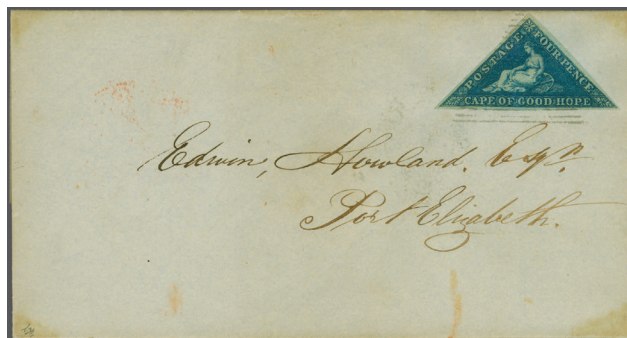 POSTAGE FOUR PENCE
CAPE OF GOOD HOPE
Edwin, Howland. Esqr.
Port Elizabeth.